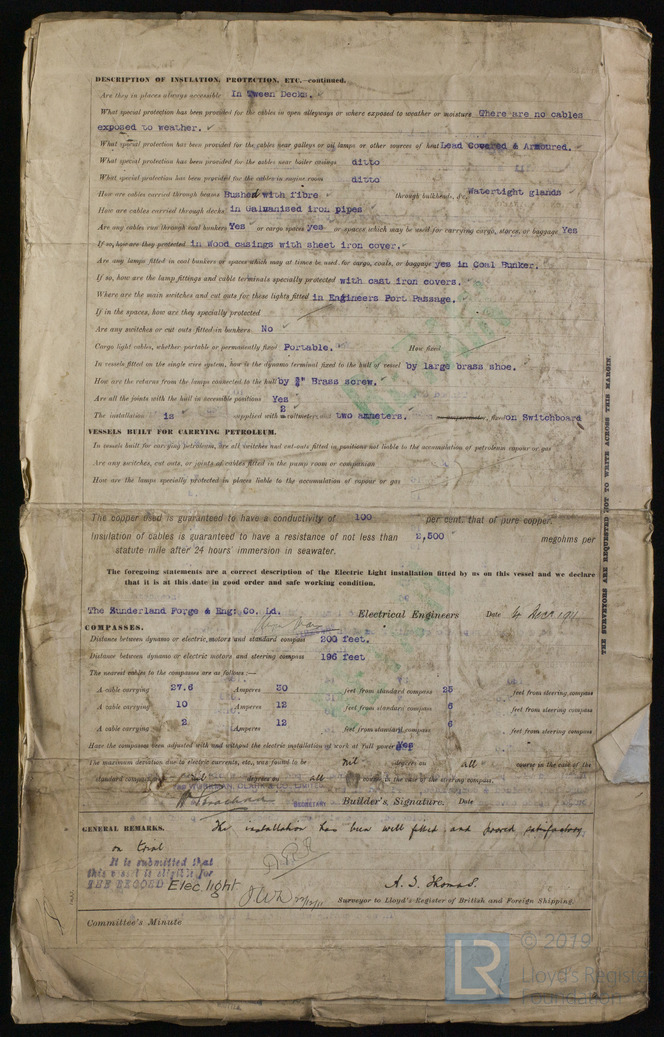 DESCRIPTION OF INSULATION, PROTECTION, ETC.—continued.
Are they in places always accessible In Tween Decks.
What special protection has been provided for the cables in open alleyways or where exposed to weather or moisture There are no cables
exposed to weather.
What special protection has been provided for the cables near galleys or oil lamps or other sources of heat Lead Covered & Armoured.
What special protection has been provided for the cables near boiler casings ditto
What special protection has been provided for the cables in engine room ditto
How are cables carried through beams Bushed with fibre through bulkheads, &c. Watertight glands
How are cables carried through decks in Galvanised iron pipes
Are any cables run through coal bunkers Yes or cargo spaces yes or spaces which may be used for carrying cargo, stores, or baggage Yes
If so, how are they protected in Wood casings with sheet iron cover.
Are any lamps fitted in coal bunkers or spaces which may at times be used for cargo, coals, or baggage yes in Coal Bunker.
If so, how are the lamp fittings and cable terminals specially protected with cast iron covers.
Where are the main switches and cut outs for these lights fitted in Engineers Port Passage.
If in the spaces, how are they specially protected
Are any switches or cut outs fitted in bunkers No
Cargo light cables, whether portable or permanently fixed Portable. How fixed
In vessels fitted on the single wire system, how is the dynamo terminal fixed to the hull of vessel by large brass shoe.
How are the returns from the lamps connected to the hull by " Brass screw.
Are all the joints with the hull in accessible positions Yes
The installation is supplied with 2 voltmeters and two ammeters. , fixed on Switchboard
VESSELS BUILT FOR CARRYING PETROLEUM.
In vessels built for carrying petroleum, are all switches and cut-outs fitted in positions not liable to the accumulation of petroleum vapour or gas
Are any switches, cut outs, or joints of cables fitted in the pump room or companion
How are the lamps specially protected in places liable to the accumulation of vapour or gas
The copper used is guaranteed to have a conductivity of 100 per cent. that of pure copper.
Insulation of cables is guaranteed to have a resistance of not less than 2,500 megohms per
statute mile after 24 hours' immersion in seawater.
The foregoing statements are a correct description of the Electric Light installation fitted by us on this vessel and we declare
that it is at this date in good order and safe working condition.
The Sunderland Forge & Eng: Co. Ld. Electrical Engineers Date Decr 1911
COMPASSES.
Distance between dynamo or electric motors and standard compass 200 feet.
Distance between dynamo or electric motors and steering compass 196 feet
The nearest cables to the compasses are as follows:—
A cable carrying 27.6 Amperes 30 feet from standard compass 25 feet from steering compass
A cable carrying 10 Amperes 12 feet from standard compass 6 feet from steering compass
A cable carrying 2 Amperes 12 feet from standard compass 6 feet from steering compass
Have the compasses been adjusted with and without the electric installation at work at full power Yes
The maximum deviation due to electric currents, etc., was found to be nil degrees on all course in the case of the
standard compass and nil degrees on all course in the case of the steering compass.
WORKMAN, CLARK & CO. LIMITED
SECRETARY Builder's Signature. Date
GENERAL REMARKS. The installation has been well fitted and proved satisfactory,
on trial
It is submitted that
this vessel is eligible for
THE RECORD Elec. light
A. J. Thomas.
Surveyor to Lloyd's Register of British and Foreign Shipping.
Committee's Minute
THE SURVEYORS ARE REQUESTED NOT TO WRITE ACROSS THIS MARGIN
LR
© 2019
Lloyd's Register
Foundation